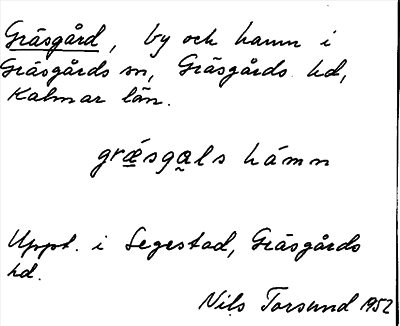 Gräsgård, by och hamn i
Gräsgårds sn, Gräsgårds hd,
Kalmar län.
grǽsga̯ls hámn
Uppt. i Segestad, Gräsgårds
hd.
Nils Torsund 1952